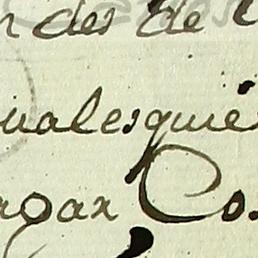 n des de
ualesquie
rgar Co.